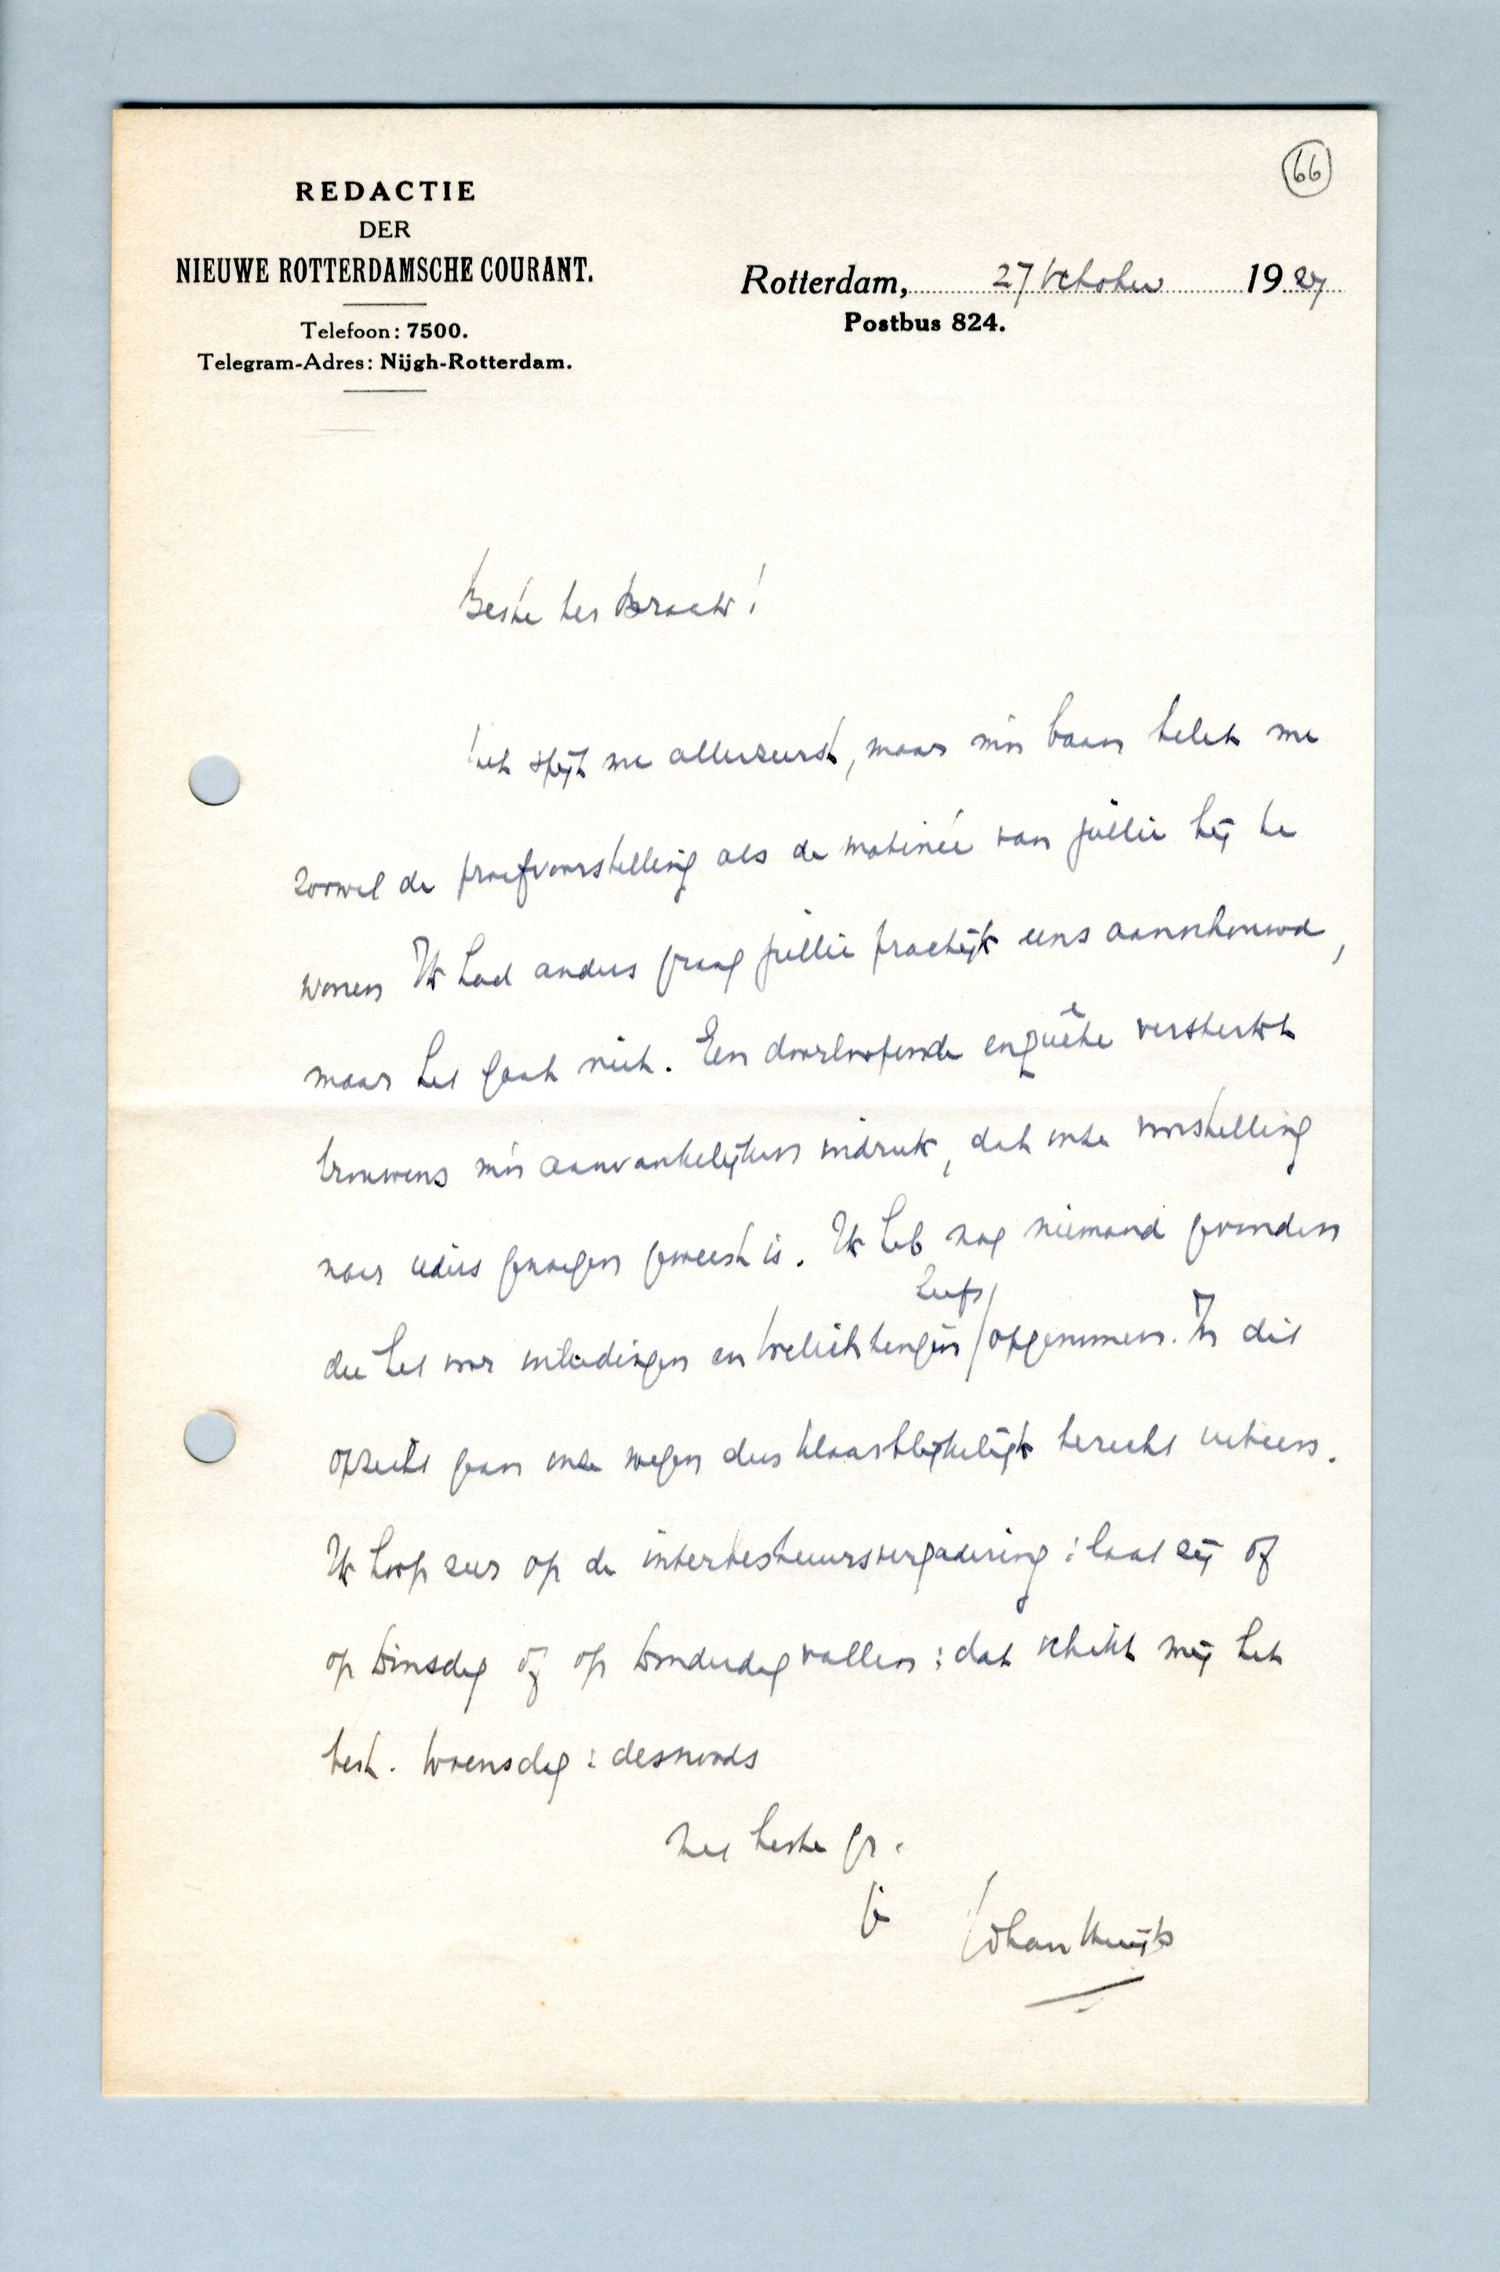 66
REDACTIE
DER
NIEUWE ROTTERDAMSCHE COURANT.
Telefoon: 7500.
Telegram-Adres: Nijgh-Rotterdam.
Rotterdam, 27 October 1927
Postbus 824.
Beste ter Braak!
het spijt me allerzeerst, maar mijn baan belet me
zoowel de proefvoorstelling als de matinée van jullie bij te
wonen Ik had anders graag jullie practijk eens aanschouwd,
maar het gaat niet. Een doorloopende enquête versterkt
trouwens mijn aanvankelijken indruk, dat onze voorstelling
naar ieders genoegen geweest is. Ik heb nog niemand gevonden
die het voor inleidingen en toelichtingen heeft opgenomen. In dit
opzicht gaan onze wegen dus klaarblijkelijk terecht uiteen.
Ik hoop zeer op de interbestuursvergadering: laat zij of
op Dinsdag of op Donderdag vallen: dat schikt mij het
best. Woensdag: desnoods
Met beste gr.
Johan Huijts